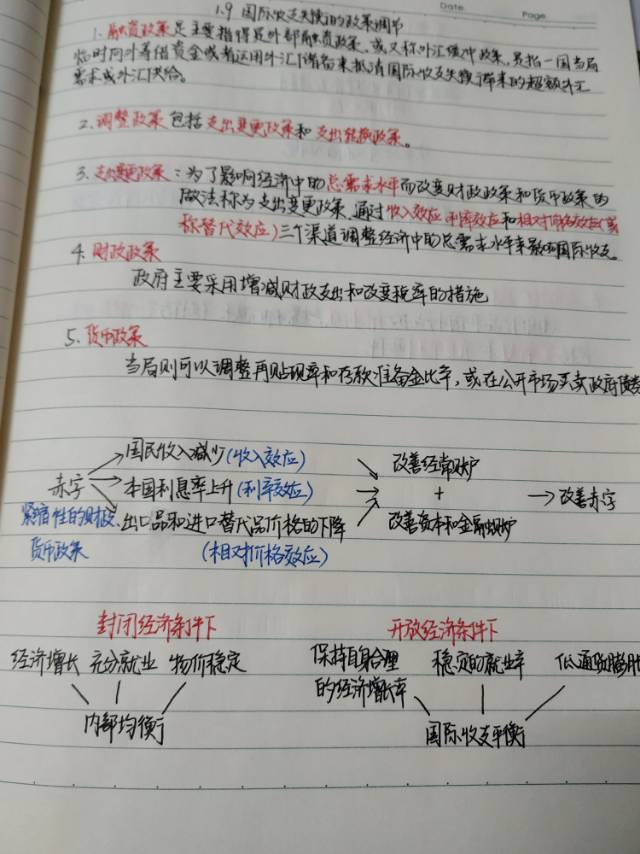 Date
Page
1.9 国际收支失衡的政策调节
1. 融资政策是主要指得是外部融资政策，或又称外汇缓冲政策，是指一国当局
临时向外筹借资金或者运用外汇储备来抵消国际收支失衡带来的超额外汇
需求或外汇供给。
2. 调整政策包括支出变更政策和支出转换政策。
3. 支出变更政策：为了影响经济中的总需求水平而改变财政政策和货币政策的
做法称为支出变更政策，通过收入效应 利率效应和相对价格效应（或
称替代效应）三个渠道调整经济中的总需求水平来影响国际收支
4. 财政政策
政府主要采用增减财政支出和改变税率的措施
5. 货币政策
当局则可以调整再贴现率和存款准备金比率，或在公开市场买卖政府债券
国民收入减少（收入效应） 改善经常账户
赤字 本国利息率上升（利率效应） + 改善赤字
紧缩性的财政 出口品和进口替代品价格的下降 改善资本和金融账户
货币政策 （相对价格效应）
封闭经济条件下 开放经济条件下
经济增长 充分就业 物价稳定 保持自身合理 稳定的就业率 低通货膨胀
的经济增长率
内部均衡 国际收支平衡